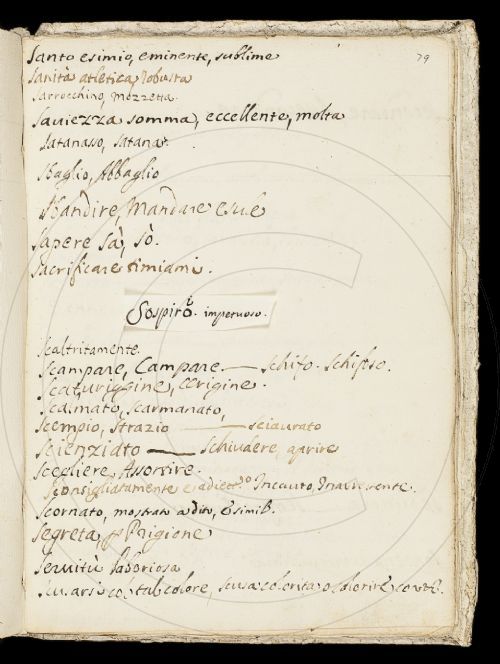 79
Santo esimio, eminente, sublime
Sanità atletica, robusta
Sarrocchino, Mozzetta
Saviezza somma, eccellente, molta
Satanasso, Satana
Sbaglio, Abbaglio
Sbandire, Mandare
Sapere Sà, Sò.
Sacrificare timiami.
Sospirò impetuoso.
Scaltritamente
Scampare, Campare — Schifo. Schifoso.
Scaturiggine, Origine.
Scalmato, Scarmanato,
Scempio, Strazio — Sciaurato
Scienziato — Schiudere, aprire
Scegliere, Assortire.
Sconsigliatamente Incauto,
Scornato, mostrato a dito, & simili.
Segreta, Prigione
Servitù laboriosa
col tal colore, scusa colorita o colorire